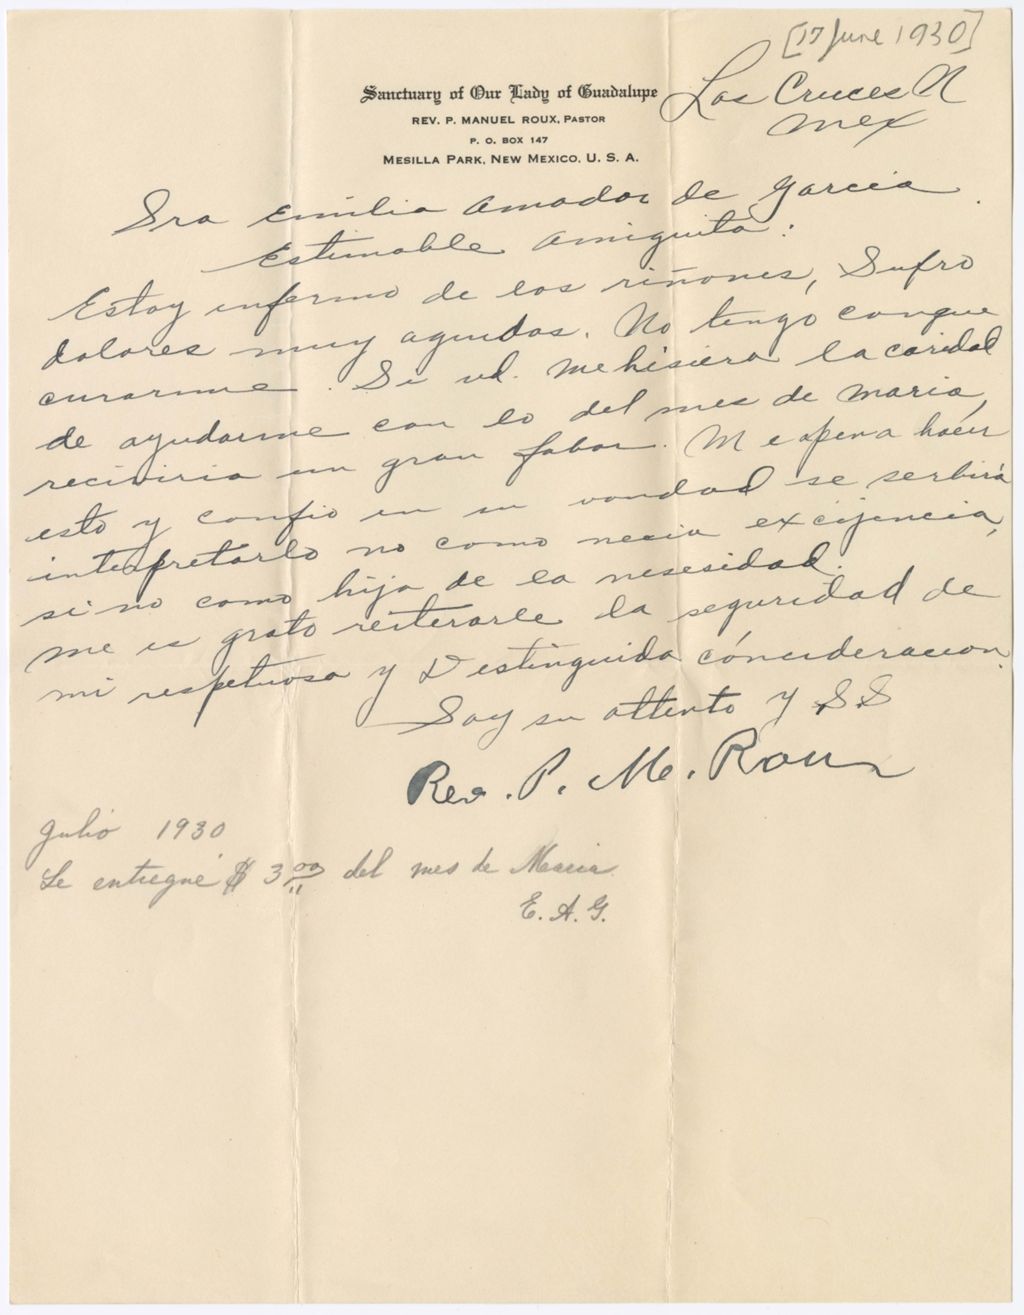 [17 June 1930]
Sanctuary of Our Lady of Guadalupe
REV. P. MANUEL ROUX, PASTOR
P. O. BOX 147
MESILLA PARK, NEW MEXICO, U. S. A.
Las Cruces N
Mex
Sra Emilia Amador de Garcia
Estimable Amiguita:
Estoy infermo de los riñones, Sufro
dolores muy agudos. No tengo conque
curarme. Si vd. me hisiera la caridad
de ayudarme con lo del mes de maria,
reciviria un gran fabor. Me apena hacer
esto y confio en su vondad se serbirá
interpretarlo no como necia excijencia,
si no como hija de la nesesidad.
me es grato reiterarle la seguridad de
mi respetuosa y Distinguida cónsideracion.
Soy su attento y S.S
Rev. P. M. Roux
Julio 1930
Le entregué $ 3.00 del mes de Maria.
E. A. G.